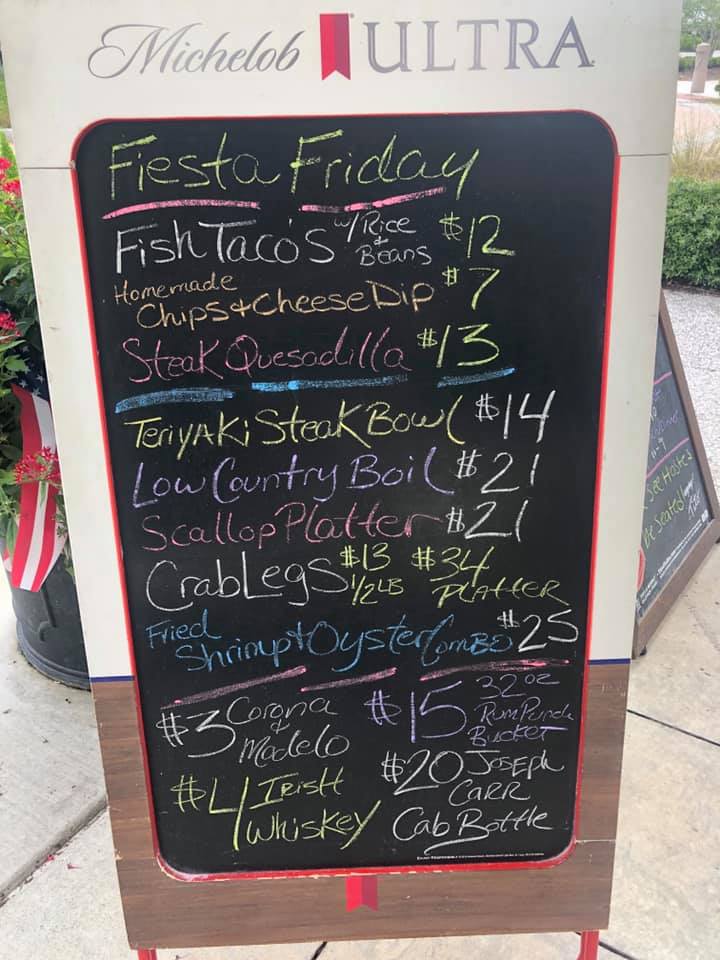 Michelob ULTRA
Fiesta Friday
Fish Taco's w/ Rice & Beans $12
Homemade
Chips & Cheese Dip $7
Steak Quesadilla $13
Teriyaki Steak Bowl $14
Low Country Boil $21
Scallop Platter $21
Crab Legs $13 1/2 LB $34 Platter
Fried
Shrimp & Oyster Combo $25
$3 Corona
&
Madelo
$15 32 oz
Rum Punch
Bucket
$4 Irish
Whiskey
$20 Joseph
Carr
Cab Bottle
See Hostess
Be Seated